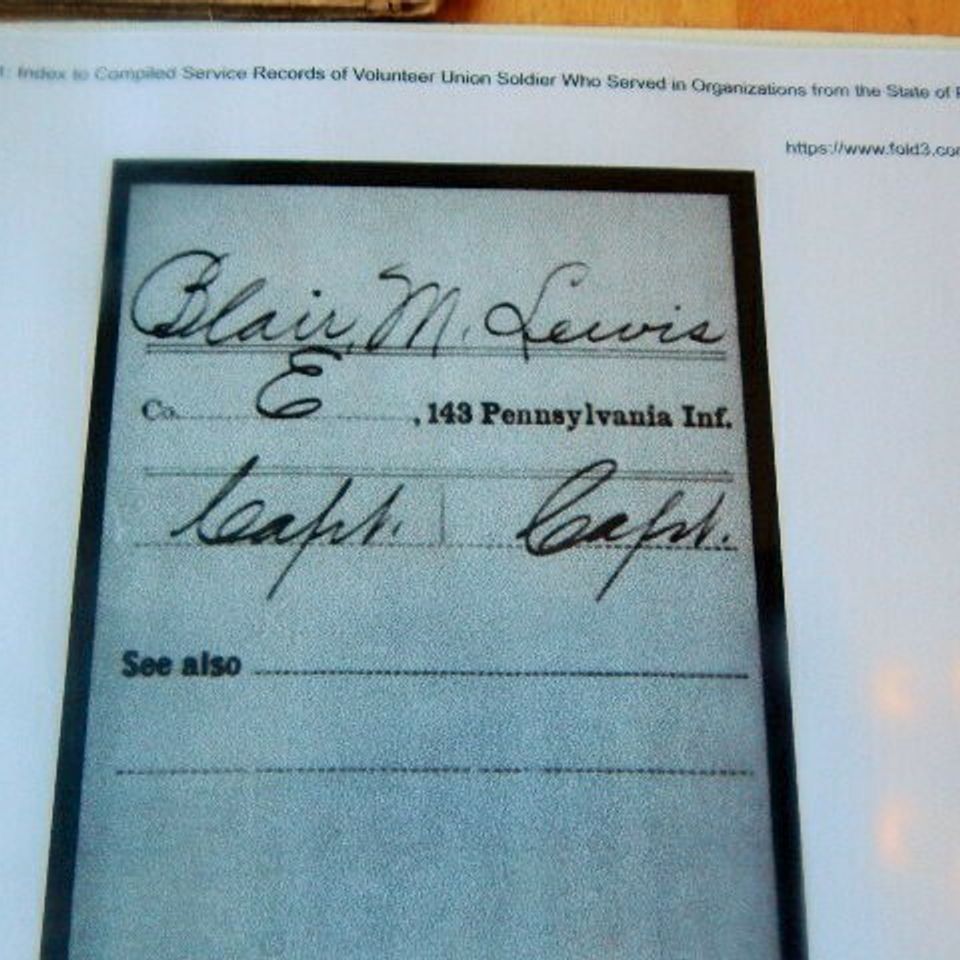 : Index to Compiled Service Records of Volunteer Union Soldier Who Served in Organizations from the State of
https://www.fold3.co
Blair, M. Lewis
Co. E, 143 Pennsylvania Inf.
Capt. Capt.
See also